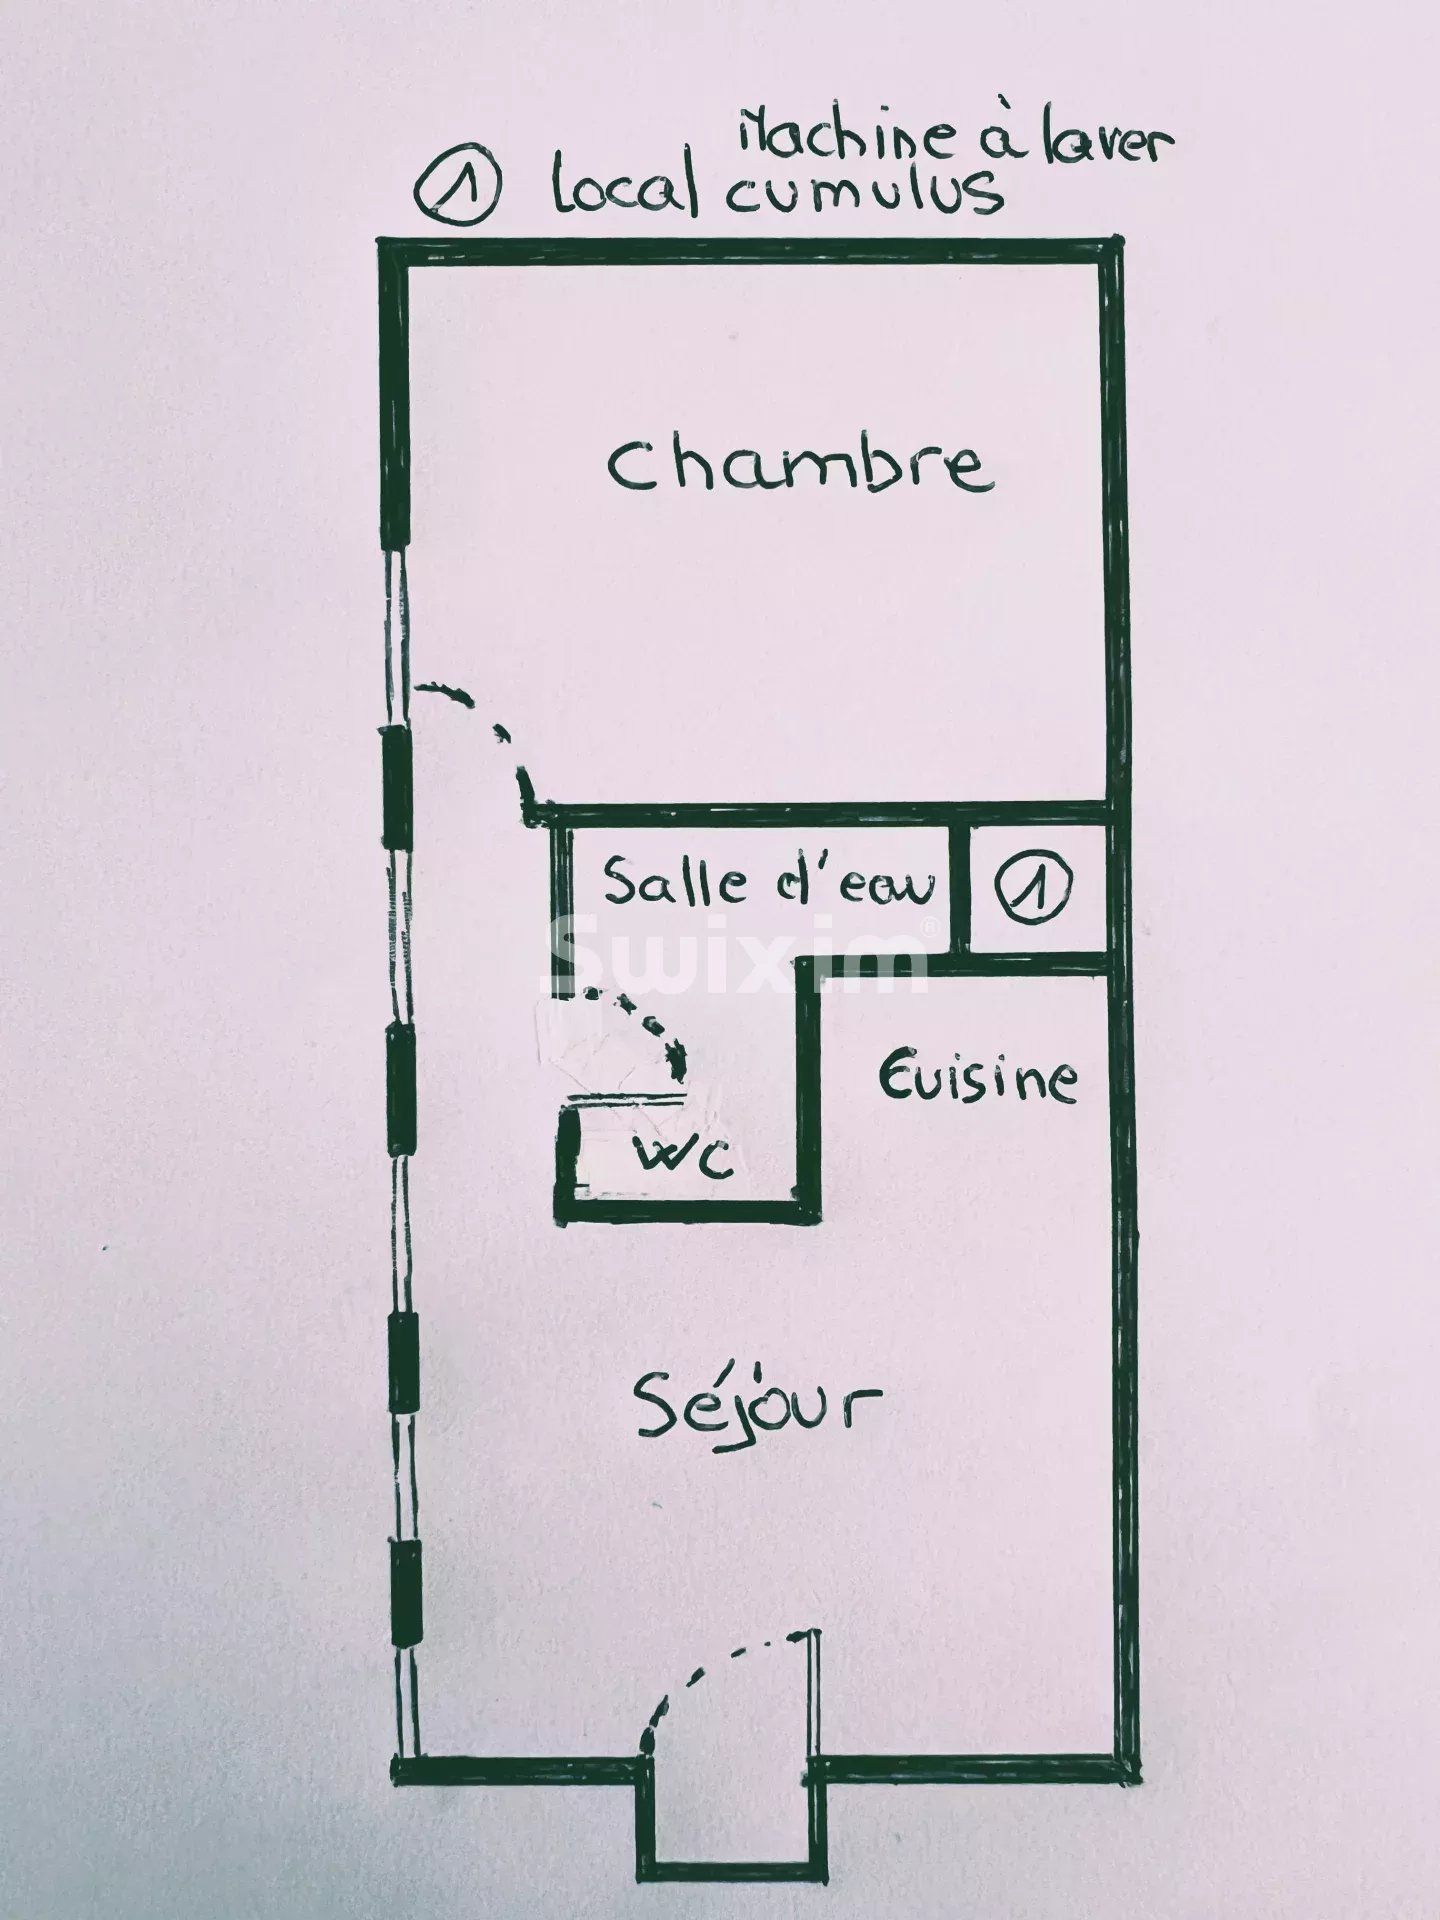 Machine à laver
1 local cumulus
Chambre
Salle d'eau
1
Swixim®
Cuisine
WC
Séjour